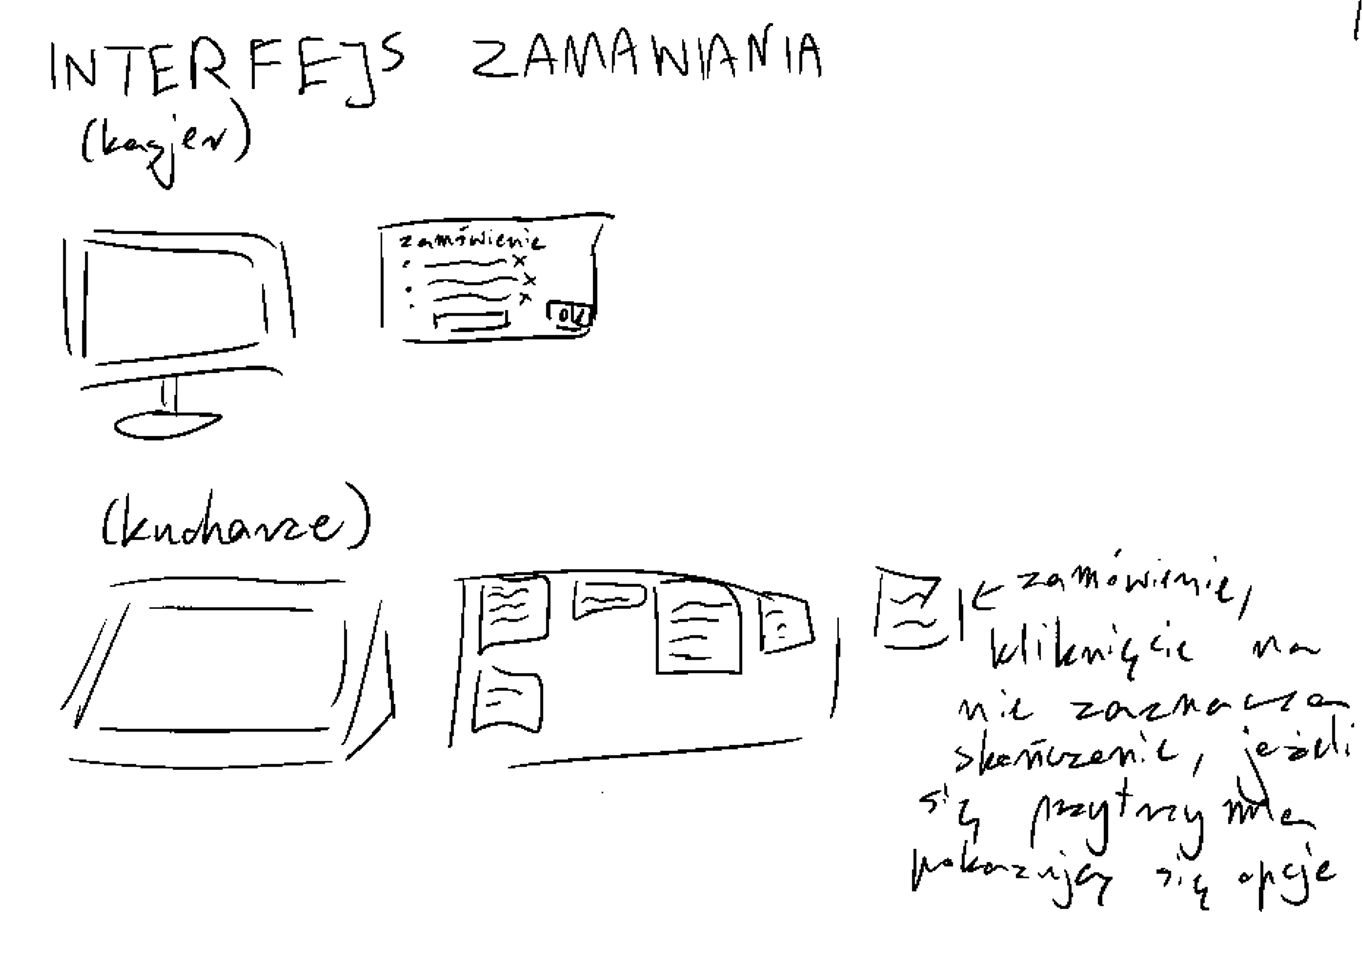 INTERFEJS ZAMAWIANIA
(kasjer)
zamówienie
x
x
x
ok
(kucharze)
zamówienie,
kliknięcie na
nie zaznacza
skończenie, jeżeli
się przytrzyma
pokazują się opcje